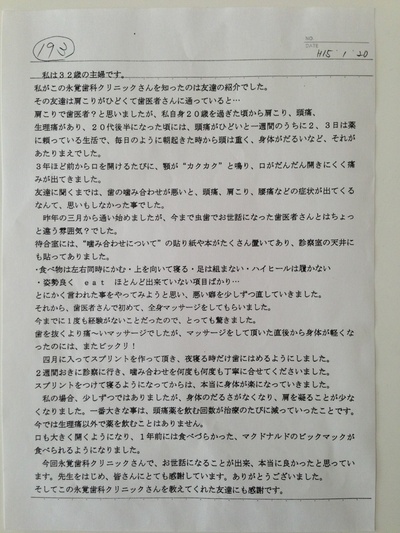 193
H15.1.20
私は32歳の主婦です。
私がこの永覚歯科クリニックさんを知ったのは友達の紹介でした。
その友達は肩こりがひどくて歯医者さんに通っていると…
肩こりで歯医者?と思いましたが、私自身20歳を過ぎた頃から肩こり、頭痛、
生理痛があり、20代後半になった頃には、頭痛がひどいと一週間のうちに2、3日は薬
に頼っている生活で、毎日のように朝起きた時から頭は重く、身体がだるいなど、それが
あたりまえでした。
3年ほど前から口を開けるたびに、顎が"カクカク"と鳴り、口がだんだん開きにくく痛
みが出てきました。
友達に聞くまでは、歯の噛み合わせが悪いと、頭痛、肩こり、腰痛などの症状が出てくる
なんて、思いもしなかった事でした。
昨年の三月から通い始めましたが、今まで虫歯でお世話になった歯医者さんとはちょっ
と違う雰囲気?でした。
待合室には、"噛み合わせについて"の貼り紙や本がたくさん置いてあり、診察室の天井に
も貼ってありました。
・食べ物は左右同時にかむ・上を向いて寝る・足は組まない・ハイヒールは履かない
・姿勢良く eat ほとんど出来ていない項目ばかり…
とにかく言われた事をやってみようと思い、悪い癖を少しずつ直していきました。
それから、歯医者さんで初めて、全身マッサージをしてもらいました。
今までに1度も経験がないことだったので、とっても驚きました。
歯を抜くより痛〜いマッサージでしたが、マッサージをして頂いた直後から身体が軽くな
ったのには、またビックリ!
四月に入ってスプリントを作って頂き、夜寝る時だけ歯にはめるようにしました。
2週間おきに診察に行き、噛み合わせを何度も何度も丁寧に合せてくださいました。
スプリントをつけて寝るようになってからは、本当に身体が楽になっていきました。
私の場合、少しずつではありましたが、身体のだるさがなくなり、肩を凝ることが少な
くなりました。一番大きな事は、頭痛薬を飲む回数が治療のたびに減っていったことです。
今では生理痛以外で薬を飲むことはありません。
口も大きく開くようになり、1年前には食べづらかった、マクドナルドのビックマックが
食べられるようになりました。
今回永覚歯科クリニックさんで、お世話になることが出来、本当に良かったと思ってい
ます。先生をはじめ、皆さんにとても感謝しています。ありがとうございました。
そしてこの永覚歯科クリニックさんを教えてくれた友達にも感謝です。